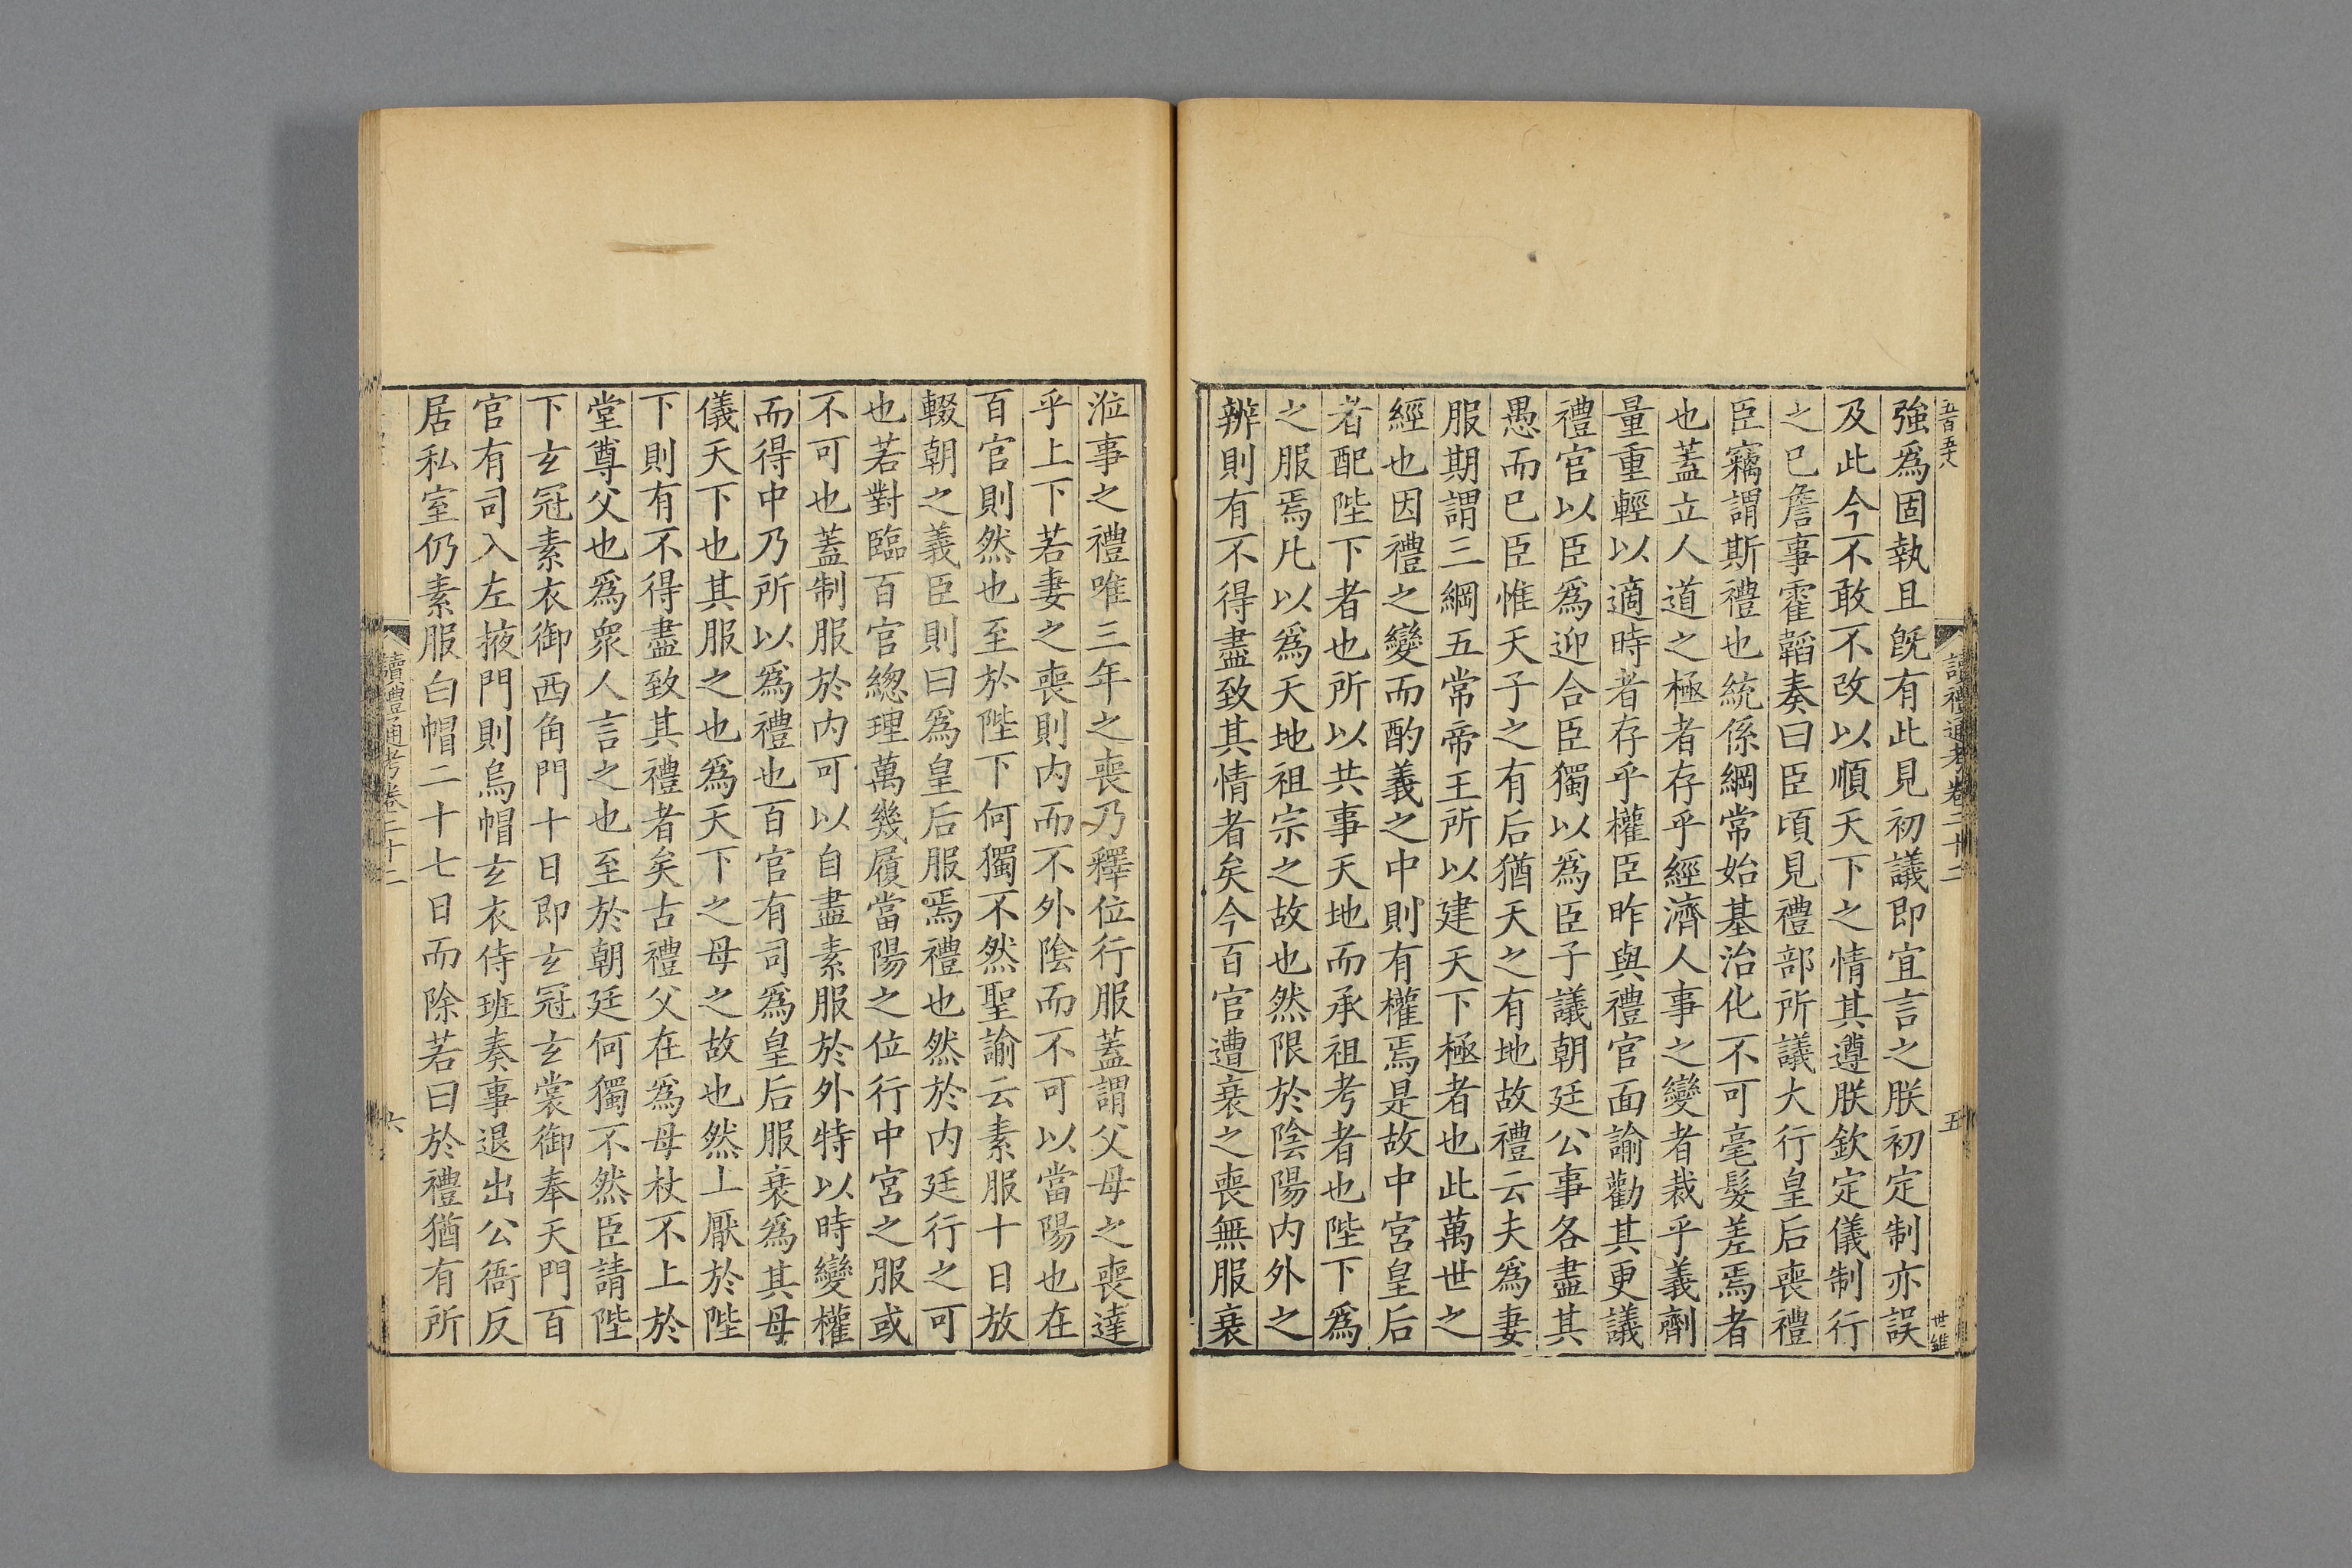 五百五十八
讀禮通考卷二十二
五
世維
強爲固執且旣有此見初議即宜言之朕初定制亦誤
及此今不敢不改以順天下之情其遵朕欽定儀制行
之已詹事霍韜奏曰臣頃見禮部所議大行皇后喪禮
臣竊謂斯禮也統係綱常始基治化不可毫髮差焉者
也蓋立人道之極者存乎經濟人事之變者裁乎義劑
量重輕以適時者存乎權臣昨與禮官面諭勸其更議
禮官以臣爲迎合臣獨以爲臣子議朝廷公事各盡其
愚而已臣惟天子之有后猶天之有地故禮云夫爲妻
服期謂三綱五常帝王所以建天下極者也此萬世之
經也因禮之變而酌義之中則有權焉是故中宮皇后
者配陛下者也所以共事天地而承祖考者也陛下爲
之服焉凡以爲天地祖宗之故也然限於陰陽内外之
辨則有不得盡致其情者矣今百官遭衰之喪無服衰
涖事之禮唯三年之喪乃釋位行服蓋謂父母之喪達
乎上下若妻之喪則内而不外陰而不可以當陽也在
百官則然也至於陛下何獨不然聖諭云素服十日放
輟朝之義臣則曰爲皇后服焉禮也然於内廷行之可
也若對臨百官總理萬幾履當陽之位行中宮之服或
不可也蓋制服於内可以自盡素服於外特以時變權
而得中乃所以爲禮也百官有司爲皇后服衰爲其母
儀天下也其服之也爲天下之母之故也然上厭於陛
下則有不得盡致其禮者矣古禮父在爲母杖不上於
堂尊父也爲衆人言之也至於朝廷何獨不然臣請陛
下玄冠素衣御西角門十日即玄冠玄裳御奉天門百
官有司入左掖門則烏帽玄衣侍班奏事退出公衙反
居私室仍素服白帽二十七日而除若曰於禮猶有所
讀禮通考卷二十二
六